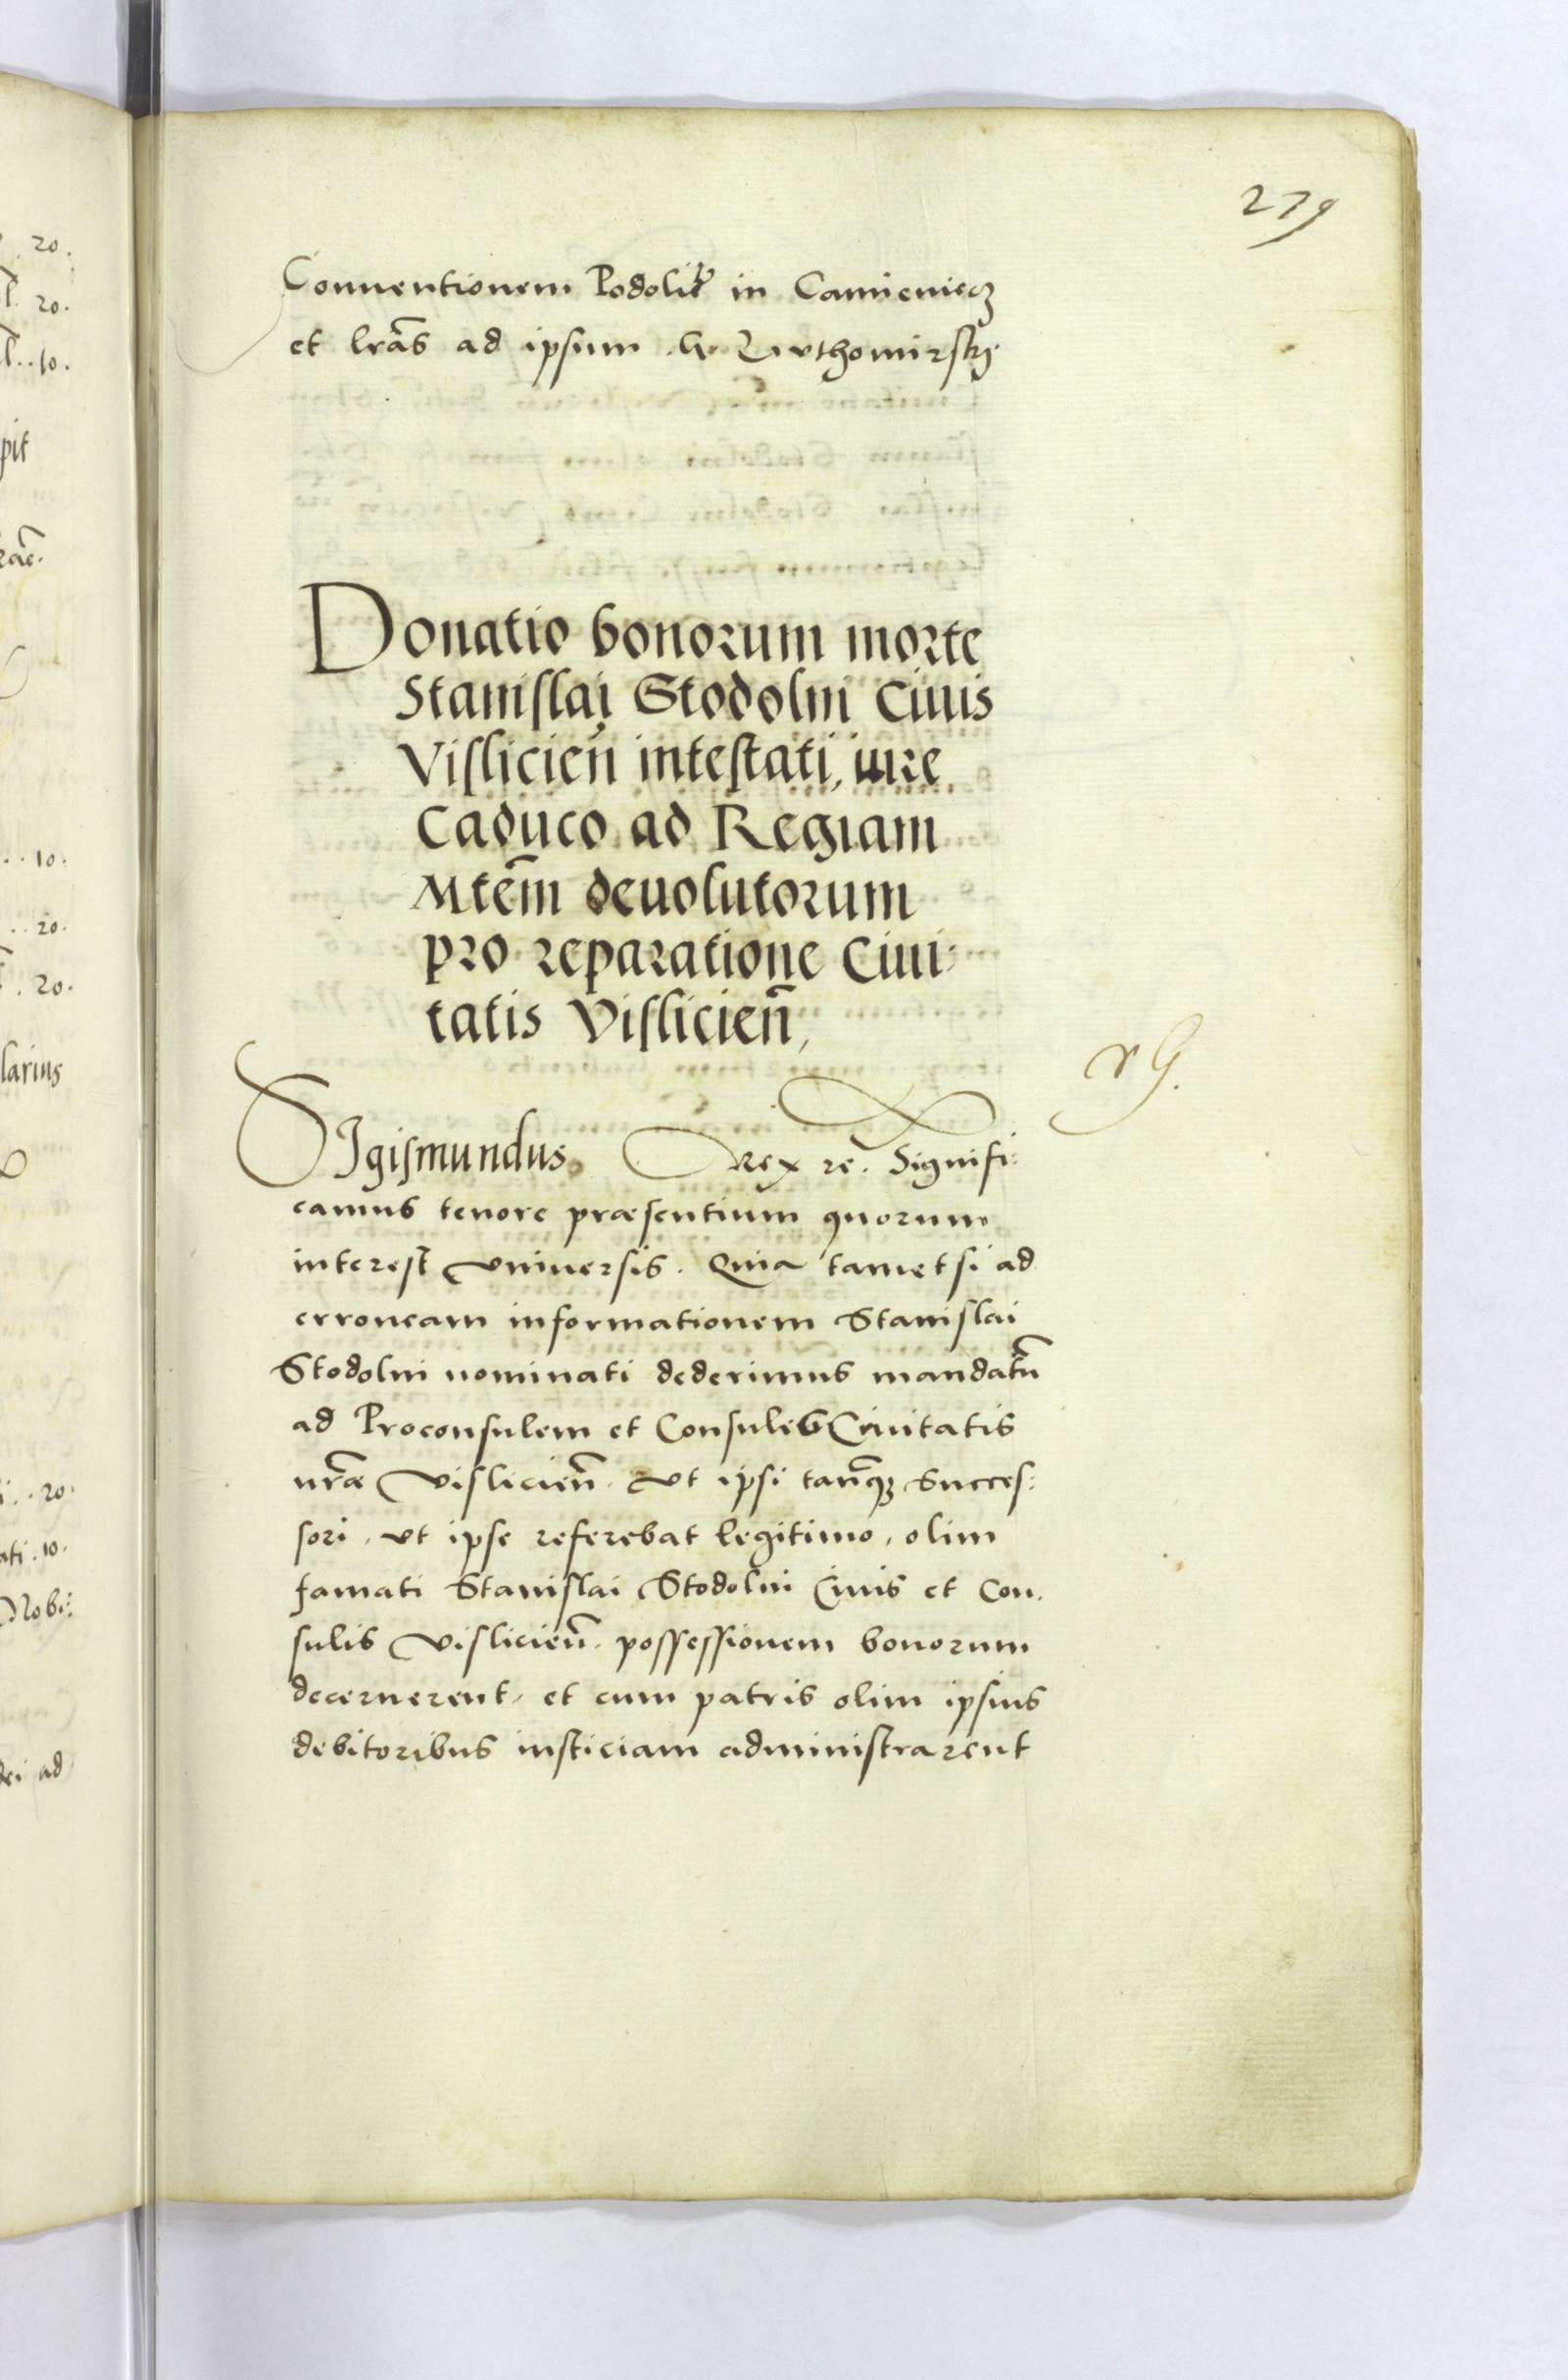 279
Conuentionem Podoliae in Camieniecz
et lrãs ad ipsum . G. Zwthomirskj
Donatio bonorum morte
Stanislai Stodolni Ciuis
Vislicień intestati, iure
Caduco ad Regiam
Mtẽm deuolutorum
pro reparatione Ciui:
tatis Vislicień,
r G.
SIgismundus Rex rẽ. Signifi:
camus tenore præsentium quorum
interest vniuersis. Quia tametsi ad
erroneam informationem Stanislai
Stodolni nominati dederimus mandatũ
ad Proconsulem et Consules Ciuitatis
nrãe Vislicieñ. Vt ipsi tanq̃ Succes:
sori, vt ipse referebat legitimo, olim
famati Stanislai Stodolni Ciuis et Con.
sulis Vislicieñ. possessionem bonorum
decernerent, et cum patris olim ipsius
debitoribus iusticiam administrarent
20.
20.
10.
pit
10.
20.
20.
larius
20.
10.
Nobi:
ad